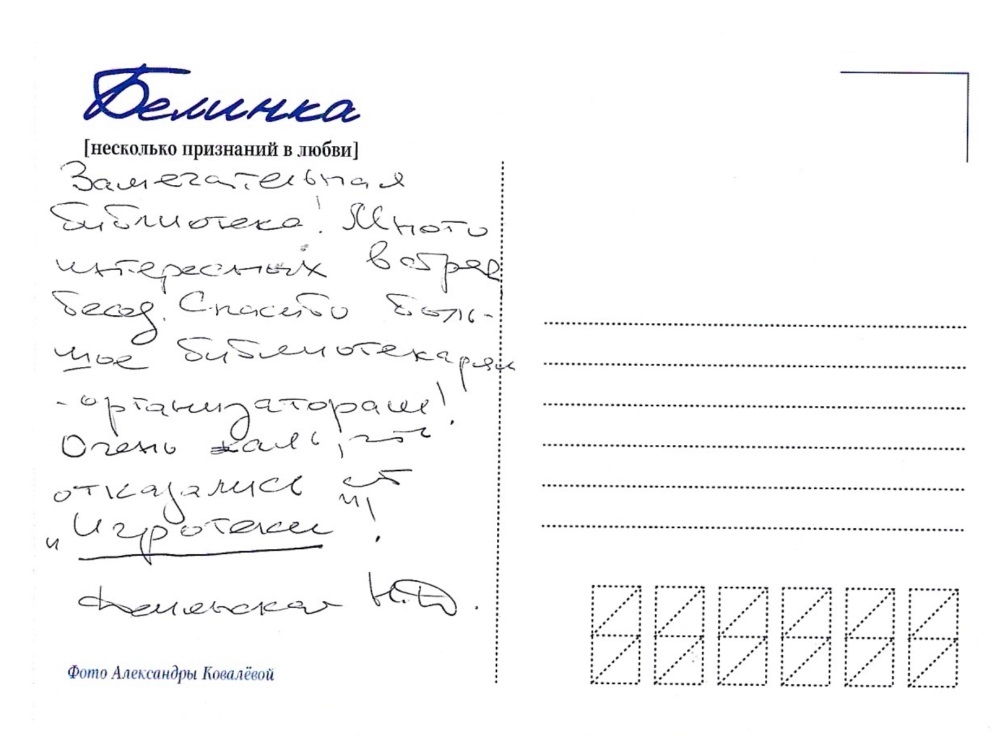 Белинка
[несколько признаний в любви]
Замечательная
библиотека! Много
интересных встреч
бесед. Спасибо боль-
шое библиотекарям
-организаторам!
Очень жаль, что
отказались от
"Игротеки"!
Н.Ю.
Фото Александры Ковалёвой